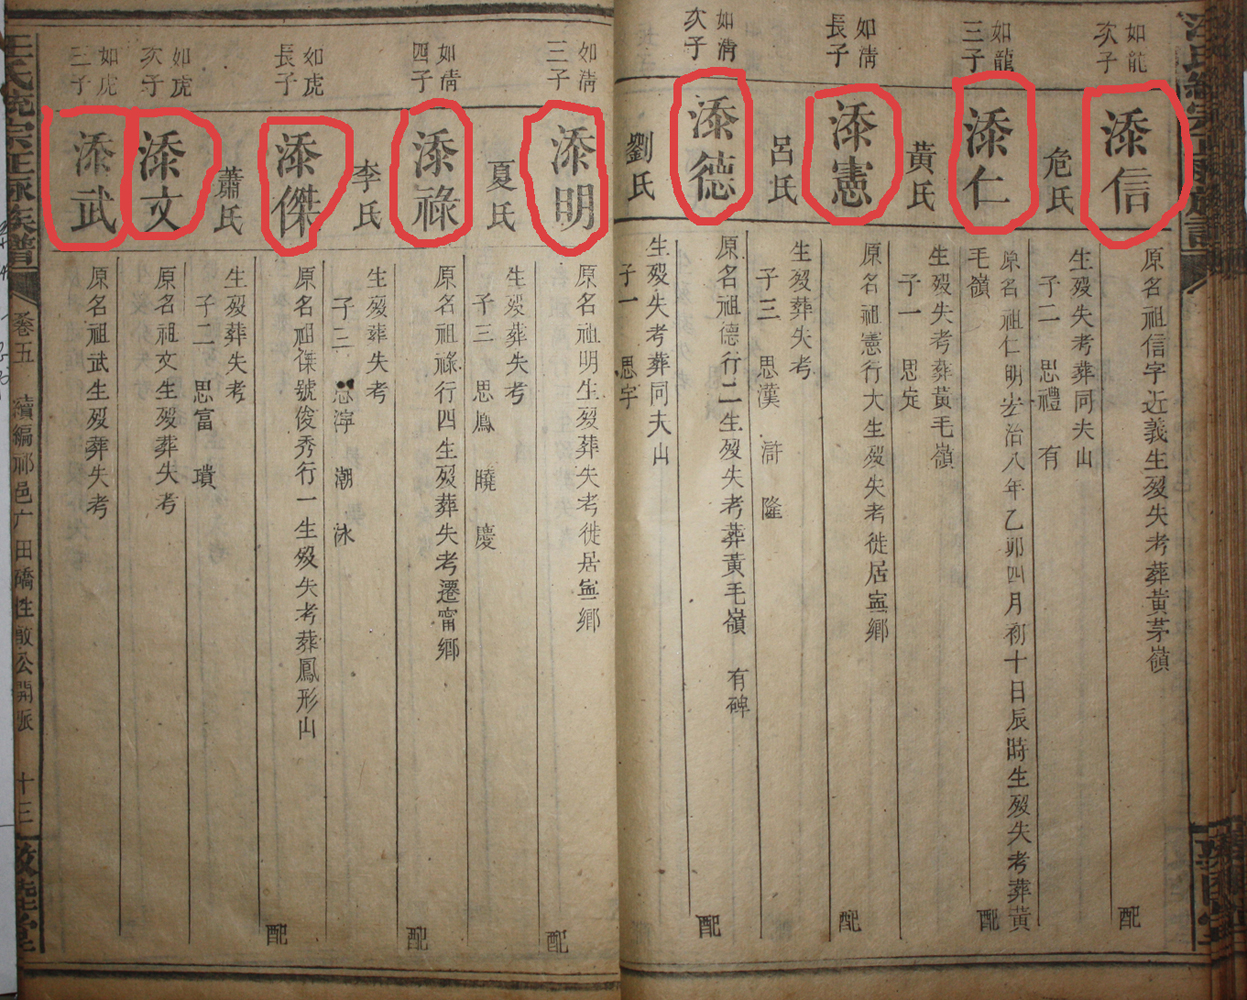 如龍
次子
添信
原名祖信字近義生歿失考葬黃茅嶺
配
危氏
生歿失考葬同夫山
子二 思禮 有
如龍
三子
添仁
原名祖仁明宏治八年乙卯四月初十日辰時生歿失考葬黃
毛嶺
配
黃氏
生歿失考葬黃毛嶺
子一 思定
如淸
長子
添憲
原名祖憲行大生歿失考徙居寍鄉
配
呂氏
生歿葬失考
子三 思漢 滸 隆
如淸
次子
添德
原名祖德行二生歿失考葬黃毛嶺 有碑
配
劉氏
生歿失考葬同夫山
子一 思宇
如淸
三子
添明
原名祖明生歿葬失考徙居寍鄉
配
夏氏
生歿葬失考
子三 思鳳 曉 慶
如倩
四子
添祿
原名祖祿行四生歿葬失考遷甯鄉
配
李氏
生歿葬失考
子三 思淳 潮 泳
如虎
長子
添傑
原名祖傑號俊秀行一生歿失考葬鳳形山
配
蕭氏
生歿葬失考
子二 思富 璝
如虎
次子
添文
原名祖文生歿葬失考
如虎
三子
添武
原名祖武生歿葬失考
王氏統宗正脉族譜
卷五 續編邵邑广田礄性敏公開派 十三
敦睦堂